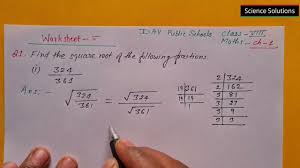 Science Solutions
Worksheet - 5
D.AV Public Schools
Class - VIII
Maths - ch-1
Q1. Find the square root of the following fractions.
(i) 324/361
Ans:- √324/361 = √324/√361
19 | 361
19 | 19
1
2 | 324
2 | 162
3 | 81
3 | 27
3 | 9
3